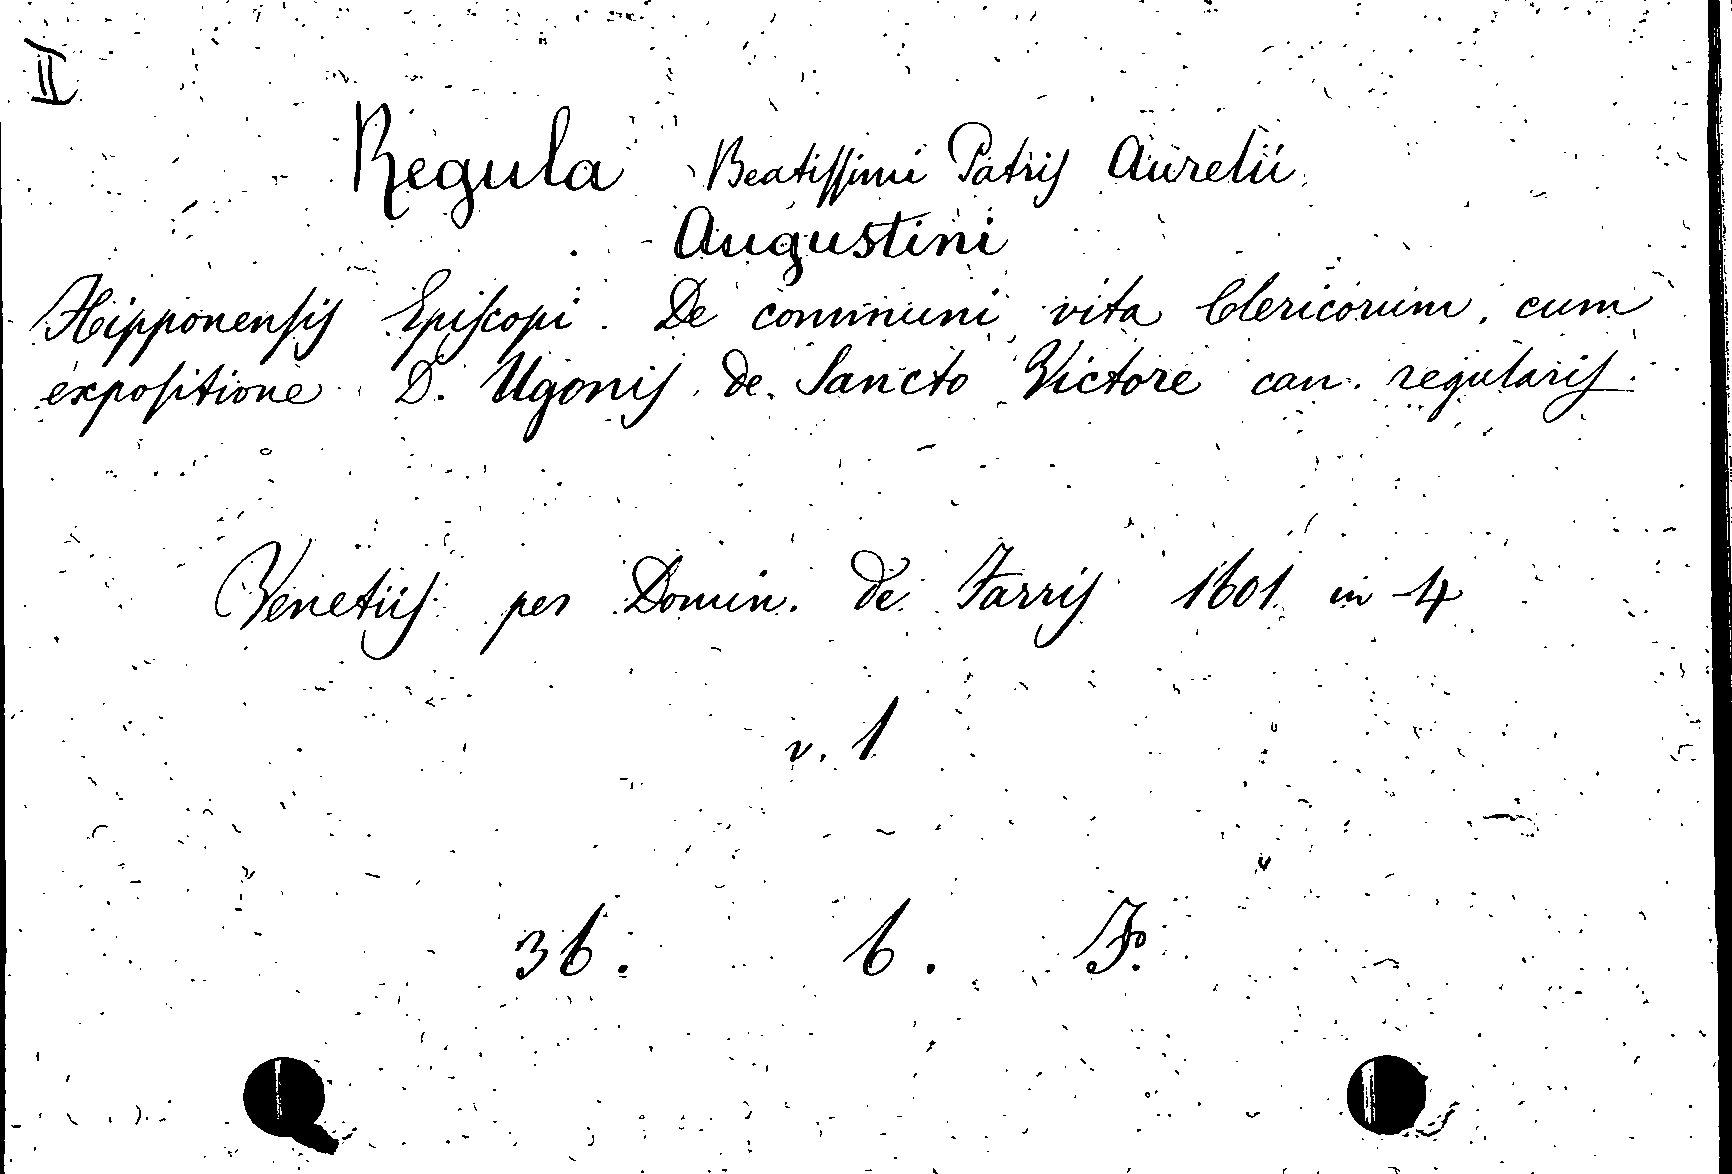 II
Regula Beatissimi Patris Aurelii
Augustini
Hipponensis Episcopi. De communi vita Clericorum, cum
expositione D. Ugonis de Sancto Victore can. regularis.
Venetiis per Domin. de Farris 1601 in 4
v. 1
36. 6. F.